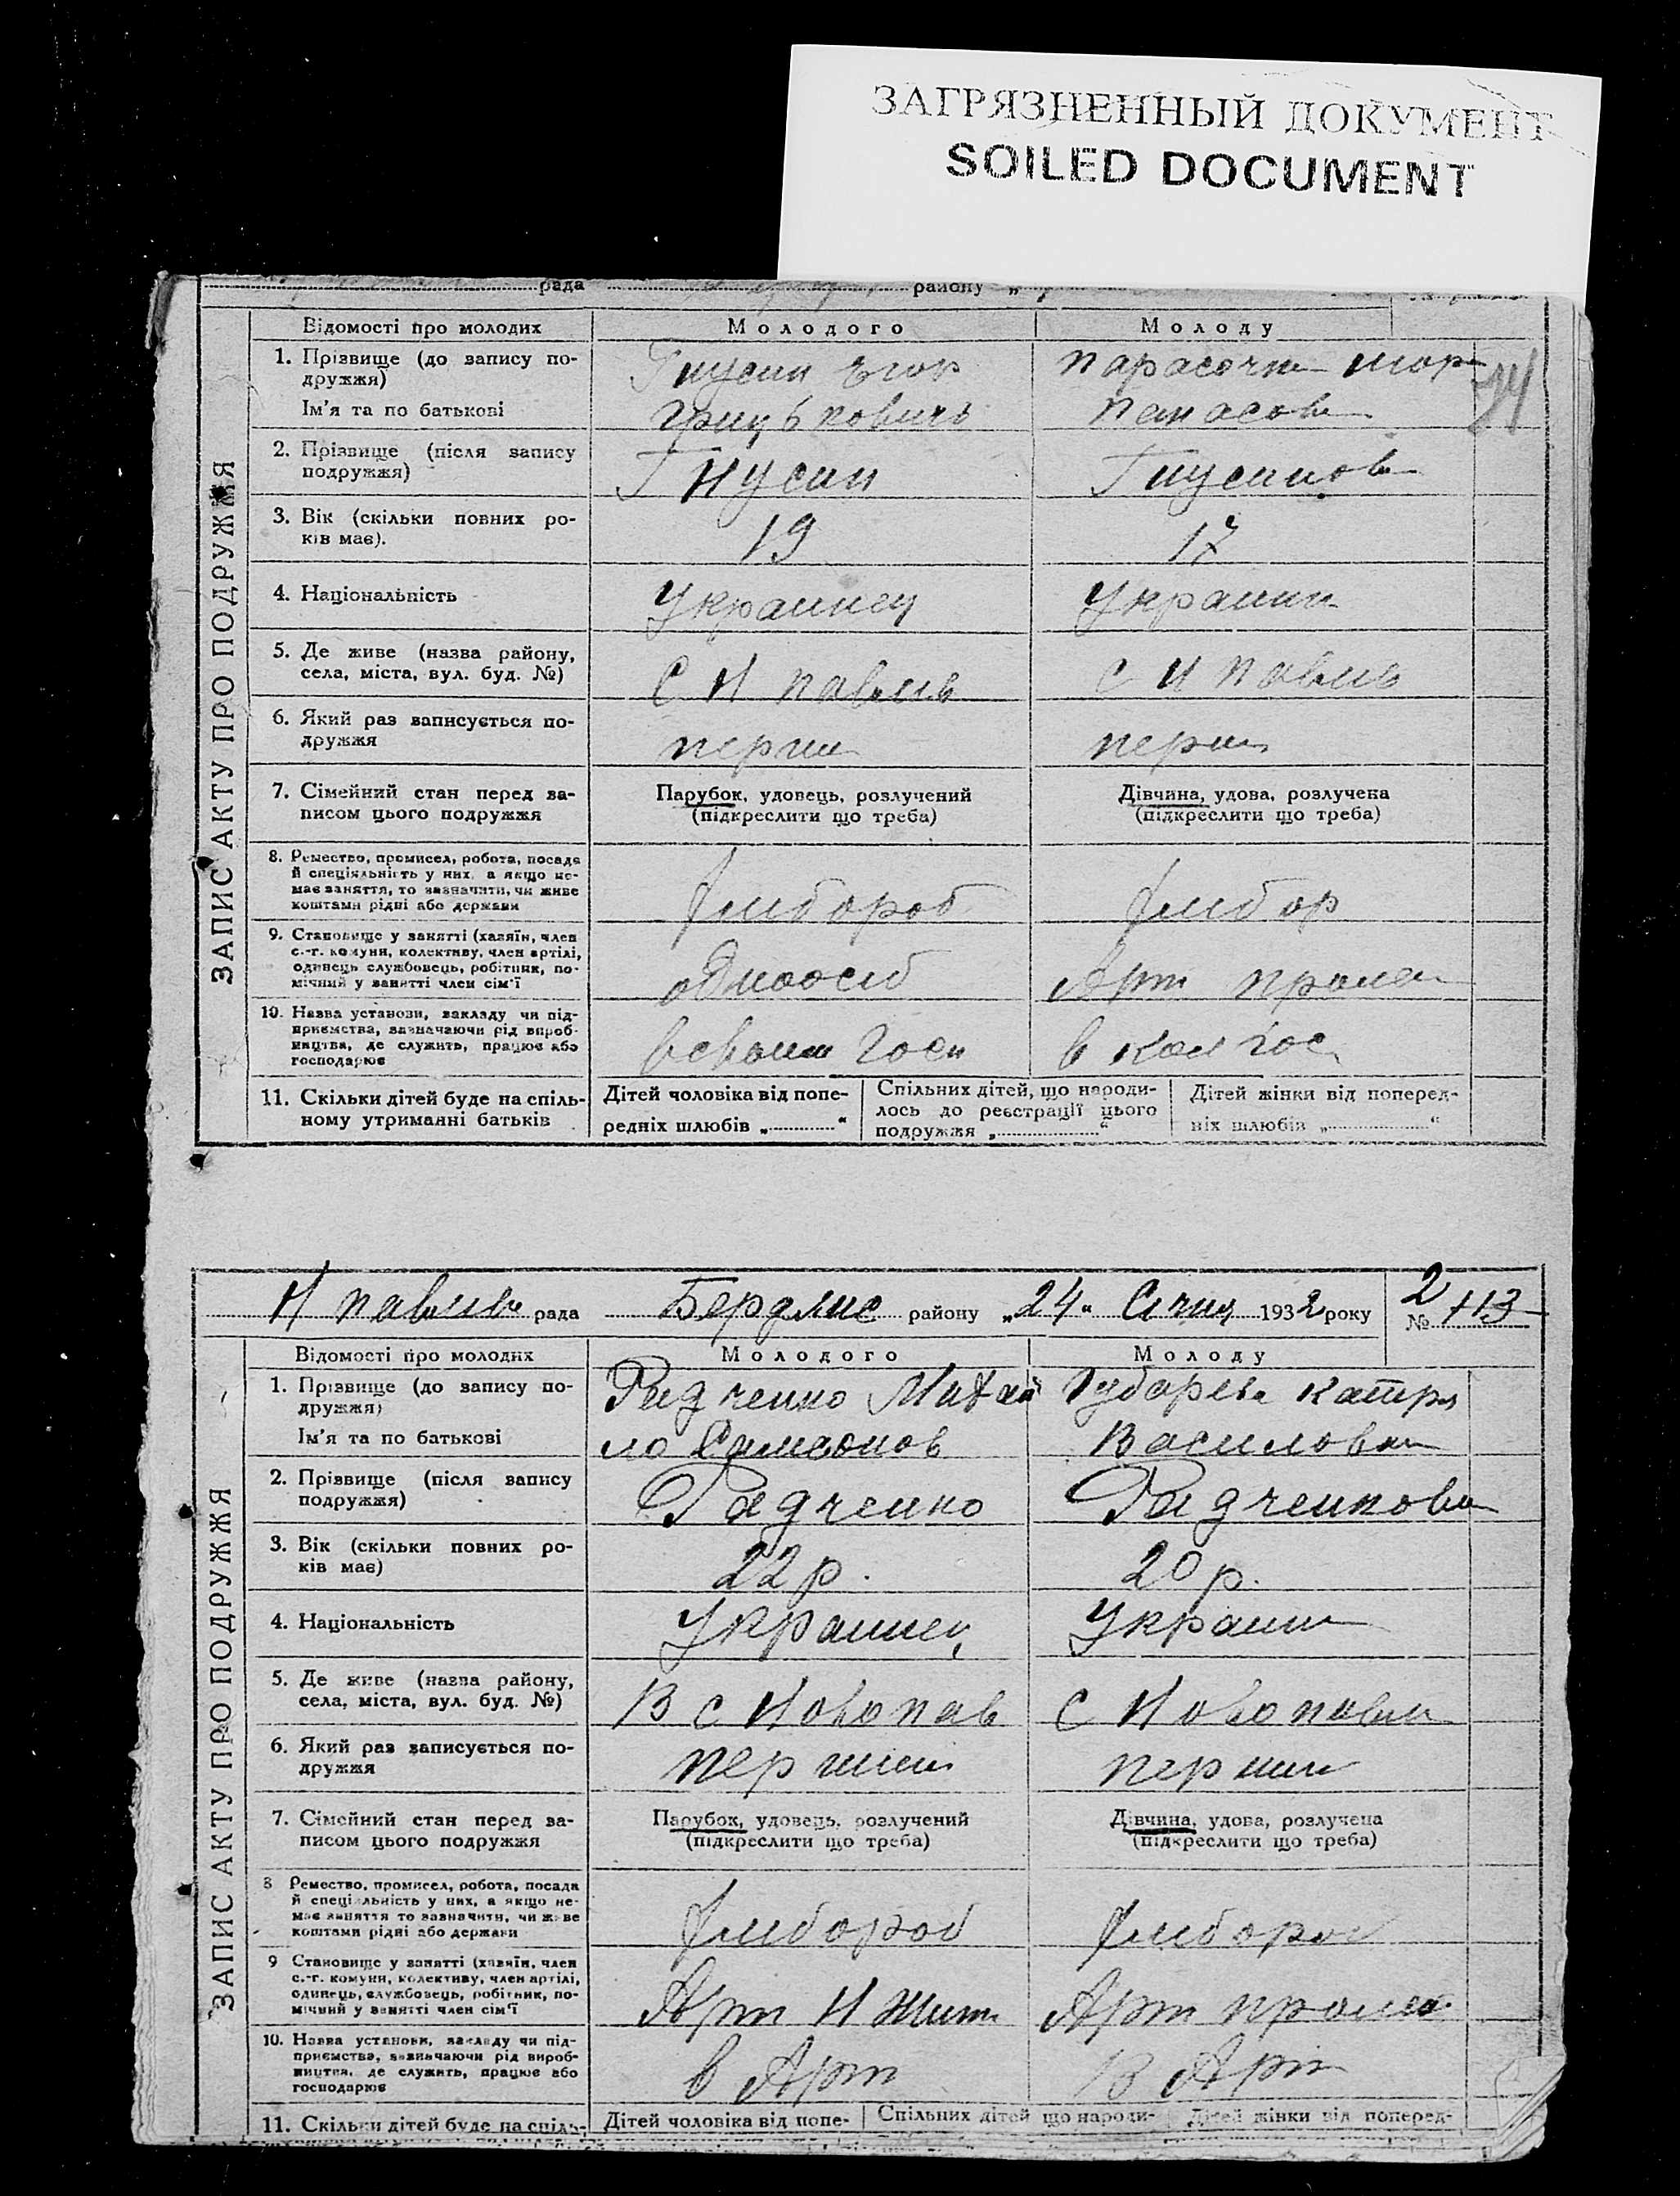 ЗАГРЯЗНЕННЫЙ ДОКУМЕНТ
SOILED DOCUMENT
рада району „
ЗАПИС АКТУ ПРО ПОДРУЖЖЯ
Відомості про молодих Молодого Молоду
1. Прізвище (до запису по-
дружжя)
Гнусин Егор
Ім'я та по батькові
Грицькович Панасов
2. Прізвище (після запису
подружжя)
Гнусин Гнусинов
3. Вік (скільки повних ро-
ків має).
19 17
4. Національність
Украинец Украин
5. Де живе (назва району,
села, міста, вул. буд. №)
С Н павлив С Н павлив
6. Який раз записується по-
дружжя
перши перши
7. Сімейний стан перед за-
писом цього подружжя
Парубок, удовець, розлучений Дівчина, удова, розлучена
(підкреслити що треба) (підкреслити що треба)
8. Ремество, промисел, робота, посада
й спеціяльність у них, а якщо не-
має заняття, то зазначити, чи живе
коштами рідні або держави
хлибороб хлибор
9. Становище у занятті (хазяїн, член
с.-г. комуни, колективу, член артілі,
одинець службовець, робітник, по-
мічний у занятті член сім'ї
одноосиб Арт пролет
10. Назва установи, закладу чи під-
приємства, зазначаючи рід вироб-
ництва, де служить, працює або
господарює
в своим госп в кол гос
11. Скільки дітей буде на спіль-
ному утриманні батьків
Дітей чоловіка від попе-
редніх шлюбів „ “
Спільних дітей, що народи-
лось до реєстрації цього
подружжя „ “
Дітей жінки від поперед-
ніх шлюбів „ “
Н павлив рада Бердянс району „24“ Січня 1932 року № 2 113
ЗАПИС АКТУ ПРО ПОДРУЖЖЯ
Відомості про молодих Молодого Молоду
1. Прізвище (до запису по-
дружжя)
Радченко Михай Губарева Катря
Ім'я та по батькові
ло Самсонов Василовна
2. Прізвище (після запису
подружжя)
Радченко Радченкова
3. Вік (скільки повних ро-
ків має)
22 р. 20 р.
4. Національність
Украинец Украин
5. Де живе (назва району,
села, міста, вул. буд. №)
В с Новопав С Новопавли
6. Який раз записується по-
дружжя
перший перши
7. Сімейний стан перед за-
писом цього подружжя
Парубок, удовець, розлучений Дівчина, удова, розлучена
(підкреслити що треба) (підкреслити що треба)
8 Ремество, промисел, робота, посада
й спеціяльність у них, а якщо не-
має заняття то зазначити, чи живе
коштами рідні або держави
хлибороб хлиборо
9 Становище у занятті (хазяїн, член
с.-г. комуни, колективу, член артілі,
одинець, службовець, робітник, по-
мічний у занятті член сім'ї
Арт Н Жит Арт пролет
10. Назва установи, закладу чи під-
приємства, зазначаючи рід вироб-
ництва, де служить, працює або
господарює
в Арт В Арт
11. Скільки дітей буде на спіль-
Дітей чоловіка від попе- Спільних дітей що народи- Дітей жінки від поперед-